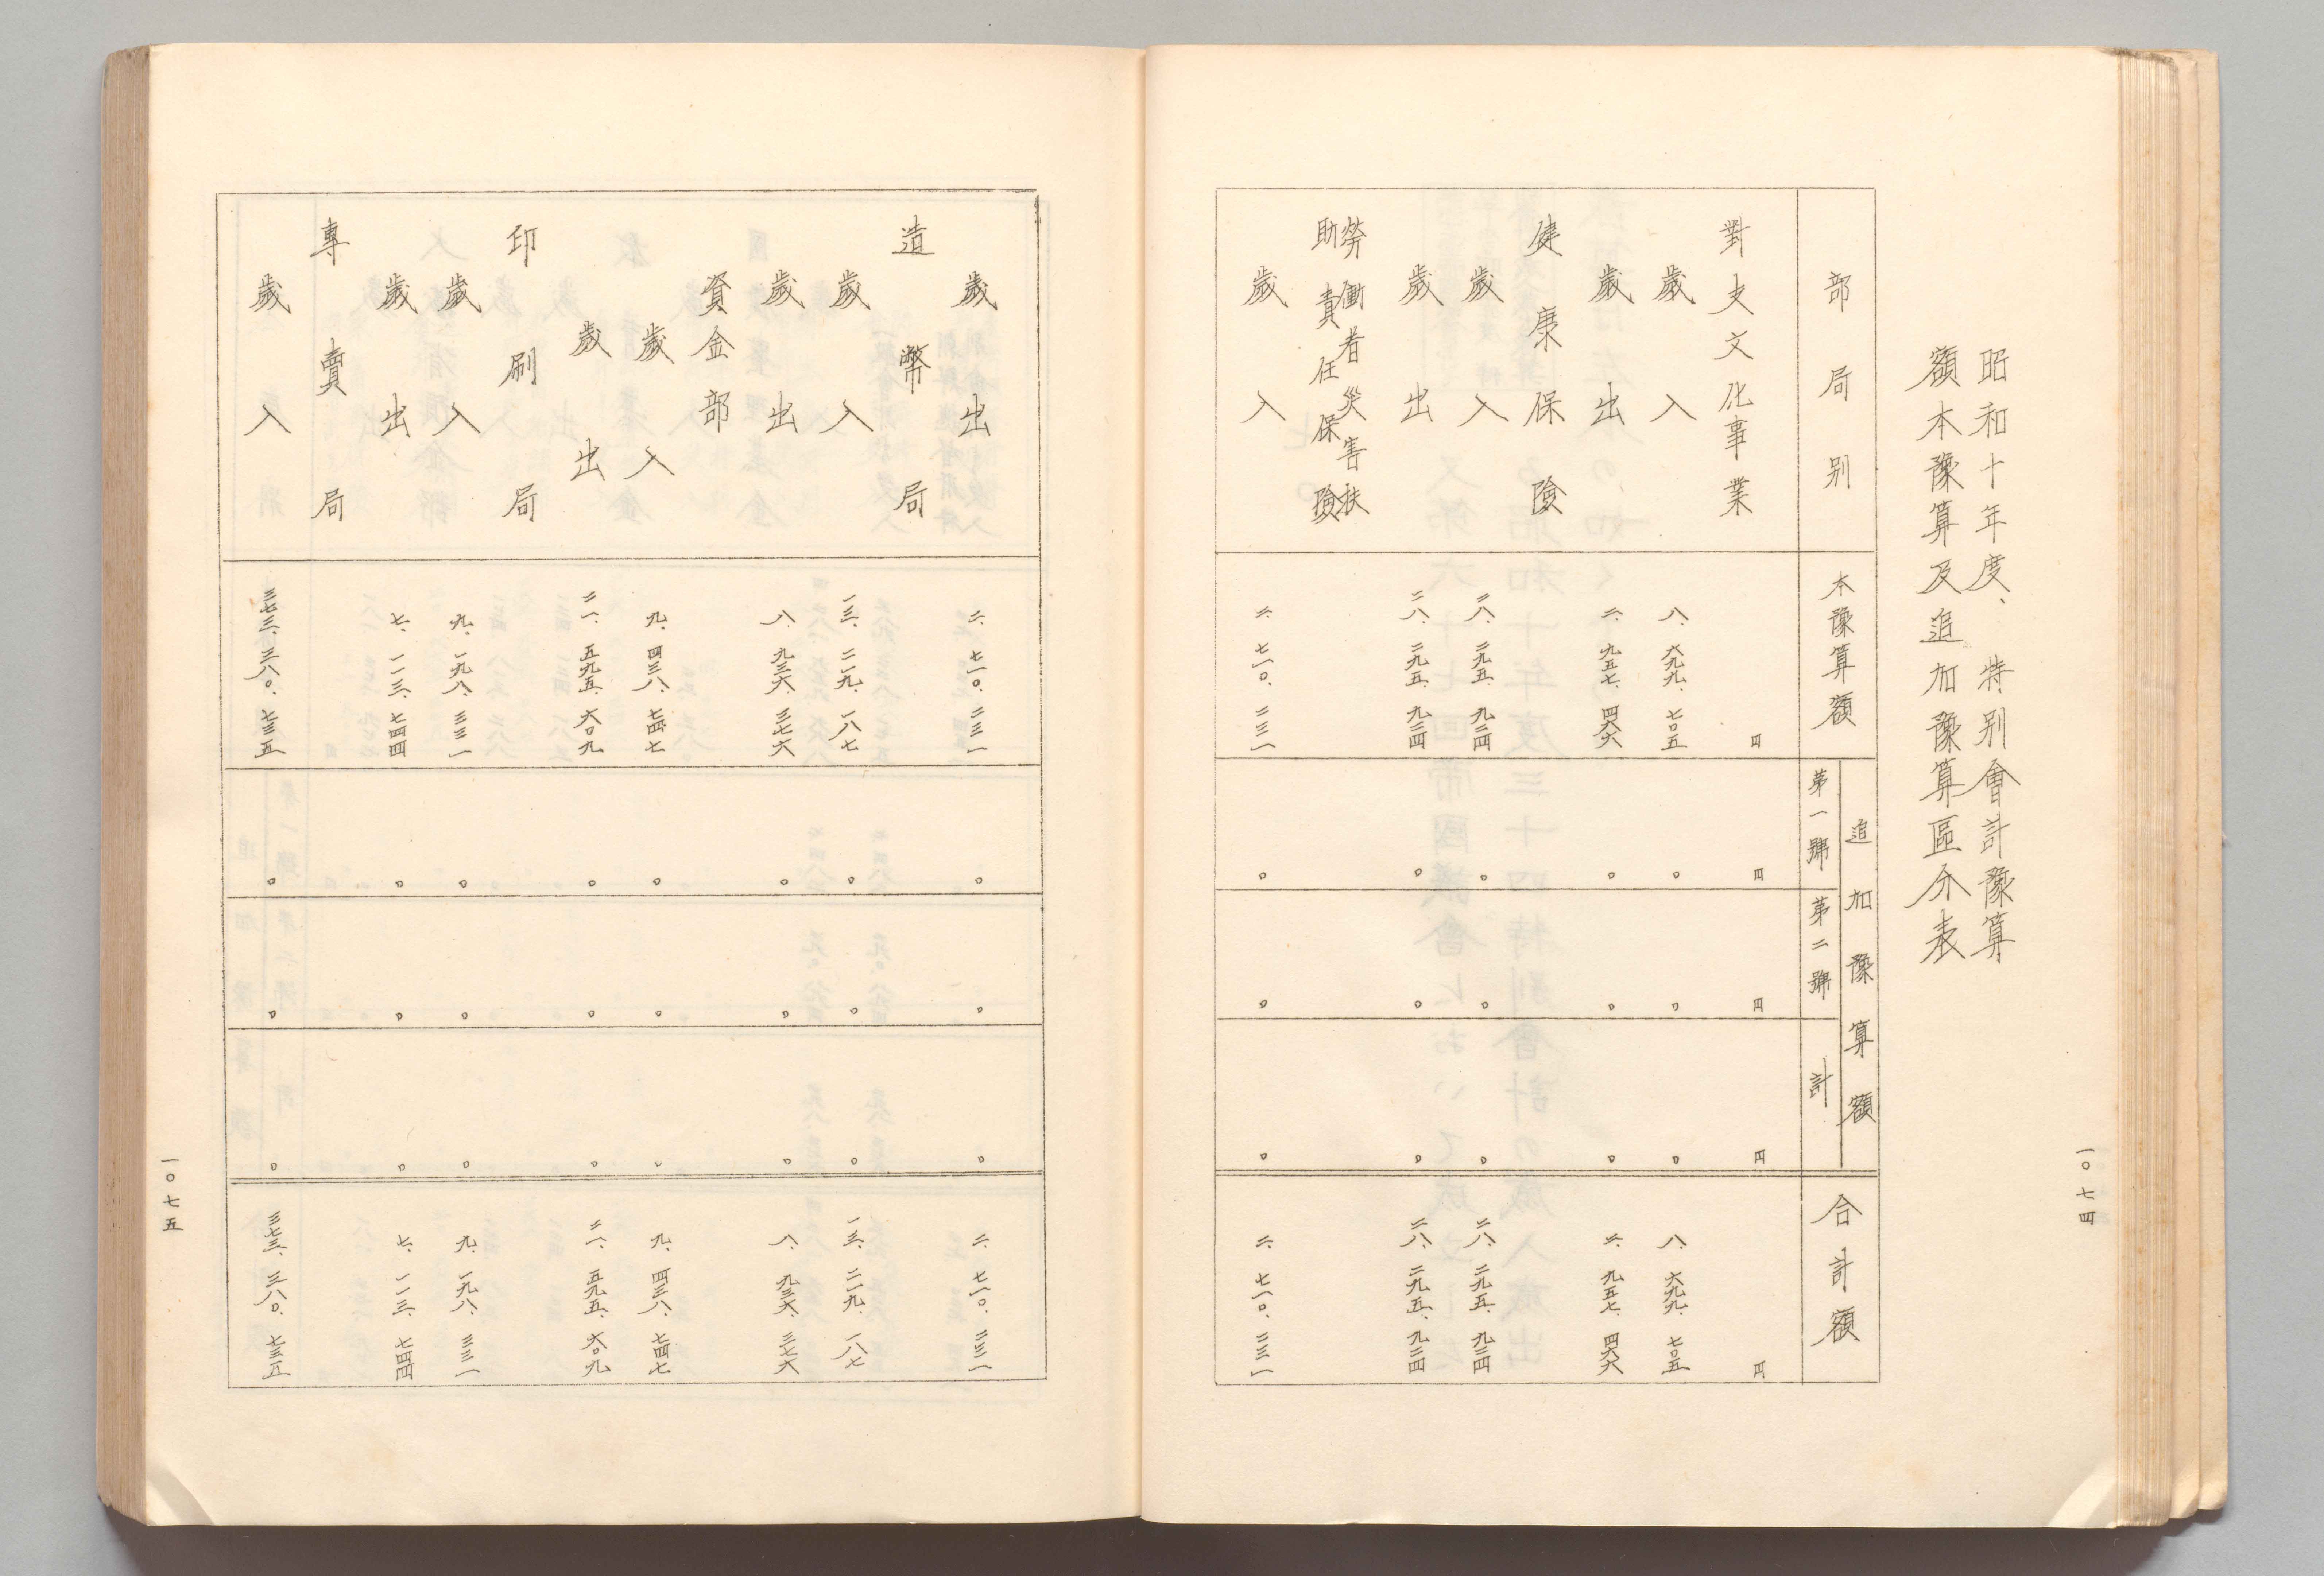 一〇七四
昭和十年度、特別會計豫算
額本豫算及追加豫算區分表
部局別 本豫算額 追加豫算額 合計額
第一號 第二號 計
對支文化事業 円 円 円 円 円
歳入 八、六九九、七〇五 〇 〇 〇 八、六九九、七〇五
歳出 二、九五七、四六六 〇 〇 〇 二、九五七、四六六
健康保險
歳入 二八、二九五、九二四 〇 〇 〇 二八、二九五、九二四
歳出 二八、二九五、九二四 〇 〇 〇 二八、二九五、九二四
勞働者災害扶
助責任保險
歳入 二、七一〇、二三一 〇 〇 〇 二、七一〇、二三一
歳出 二、七一〇、二三一 〇 〇 〇 二、七一〇、二三一
造幣局
歳入 一三、二一九、一八七 〇 〇 〇 一三、二一九、一八七
歳出 八、九三六、三七六 〇 〇 〇 八、九三六、三七六
資金部
歳入 九、四三八、七四七 〇 〇 〇 九、四三八、七四七
歳出 二一、五九五、六〇九 〇 〇 〇 二一、五九五、六〇九
印刷局
歳入 九、一九八、三三一 〇 〇 〇 九、一九八、三三一
歳出 七、一一三、七四四 〇 〇 〇 七、一一三、七四四
專賣局
歳入 三七三、三八〇、七三五 〇 〇 〇 三七三、三八〇、七三五
一〇七五